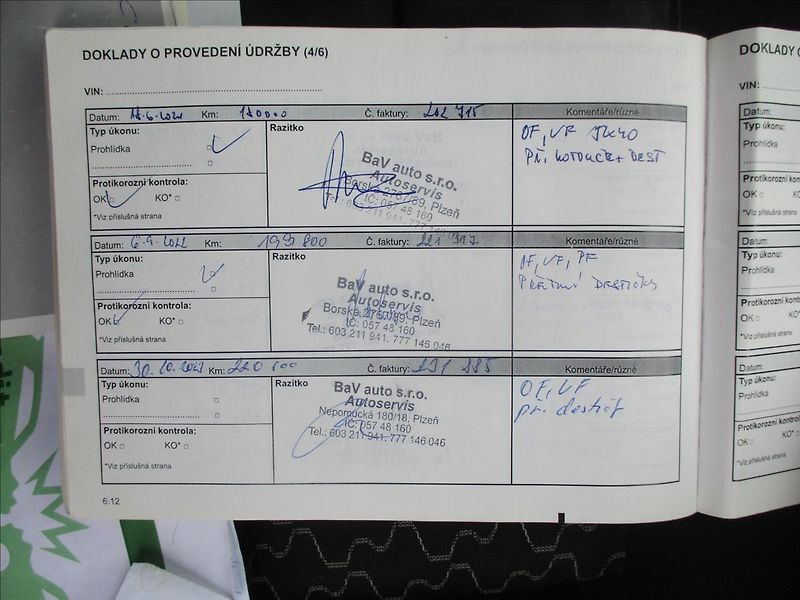 DOKLADY O PROVEDENÍ ÚDRŽBY (4/6)
VIN:
Datum: Km: Č. faktury: Komentáře/různé
Typ úkonu: Razítko OF, VF
Prohlídka
PŘ. KOTOUČE + DEST
BaV auto s.r.o.
Autoservis
Borská 2767/89, Plzeň
IČ: 057 48 160
Tel.: 603 211 941, 777 146 046
Protikorozní kontrola:
OK KO*
*Viz příslušná strana
Datum: 6.9.2022 Km: 199 800 Č. faktury: 221 317 Komentáře/různé
Typ úkonu: Razítko OF, VF, PF
Prohlídka PŘEDNÍ DESTIČKY
BaV auto s.r.o.
Autoservis
Borská 2767/89, Plzeň
IČ: 057 48 160
Tel.: 603 211 941, 777 146 046
Protikorozní kontrola:
OK KO*
*Viz příslušná strana
Datum: 30.10.2023 Km: 220 000 Č. faktury: 231 385 Komentáře/různé
Typ úkonu: Razítko OF, VF
Prohlídka př. destič
BaV auto s.r.o.
Autoservis
Nepomucká 180/18, Plzeň
IČ: 057 48 160
Tel.: 603 211 941, 777 146 046
Protikorozní kontrola:
OK KO*
*Viz příslušná strana
6.12
DOKLADY
VIN:
Datum:
Typ úkonu:
Prohlídka
Protikorozní
OK
*Viz příslušná
Datum:
Typ úkonu:
Prohlídka
Protikorozní
OK
*Viz příslušná
Datum:
Typ úkonu:
Prohlídka
Protikorozní
OK
*Viz příslušná